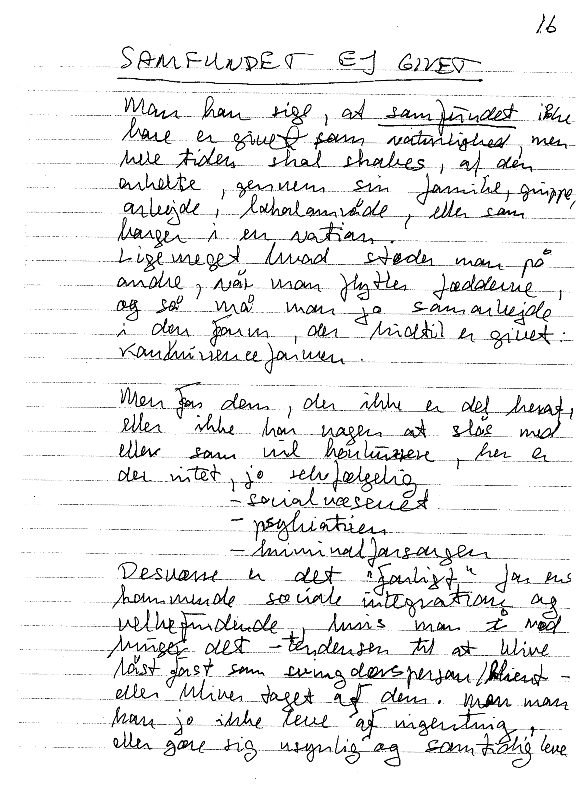 16
SAMFUNDET EJ GIVET
Man kan sige, at samfundet ikke
bare er givet som naturlighed, men
hele tiden skal skabes, af den
enkelte, gennem sin familie, gruppe,
arbejde, lokalområde, eller som
borger i en nation.
Ligemeget hvad støder man på
andre, når man flytter fødderne,
og så må man jo samarbejde
i den form, der hidtil er givet:
Konkurrenceformen.
Men for dem, der ikke er del heraf,
eller ikke har nogen at slås med
eller som vil konkurrere, her er
der intet, jo selvfølgelig
- socialvæsenet
- psykiatrien
- kriminalforsorgen
Desværre er det "farligt" for ens
kommende sociale integration og
velbefindende, hvis man
det - tendensen til at blive
låst fast som svingdørsperson/klient -
eller bliver taget af dem. Men man
kan jo ikke leve af ingenting,
eller gøre sig usynlig og samtidig leve